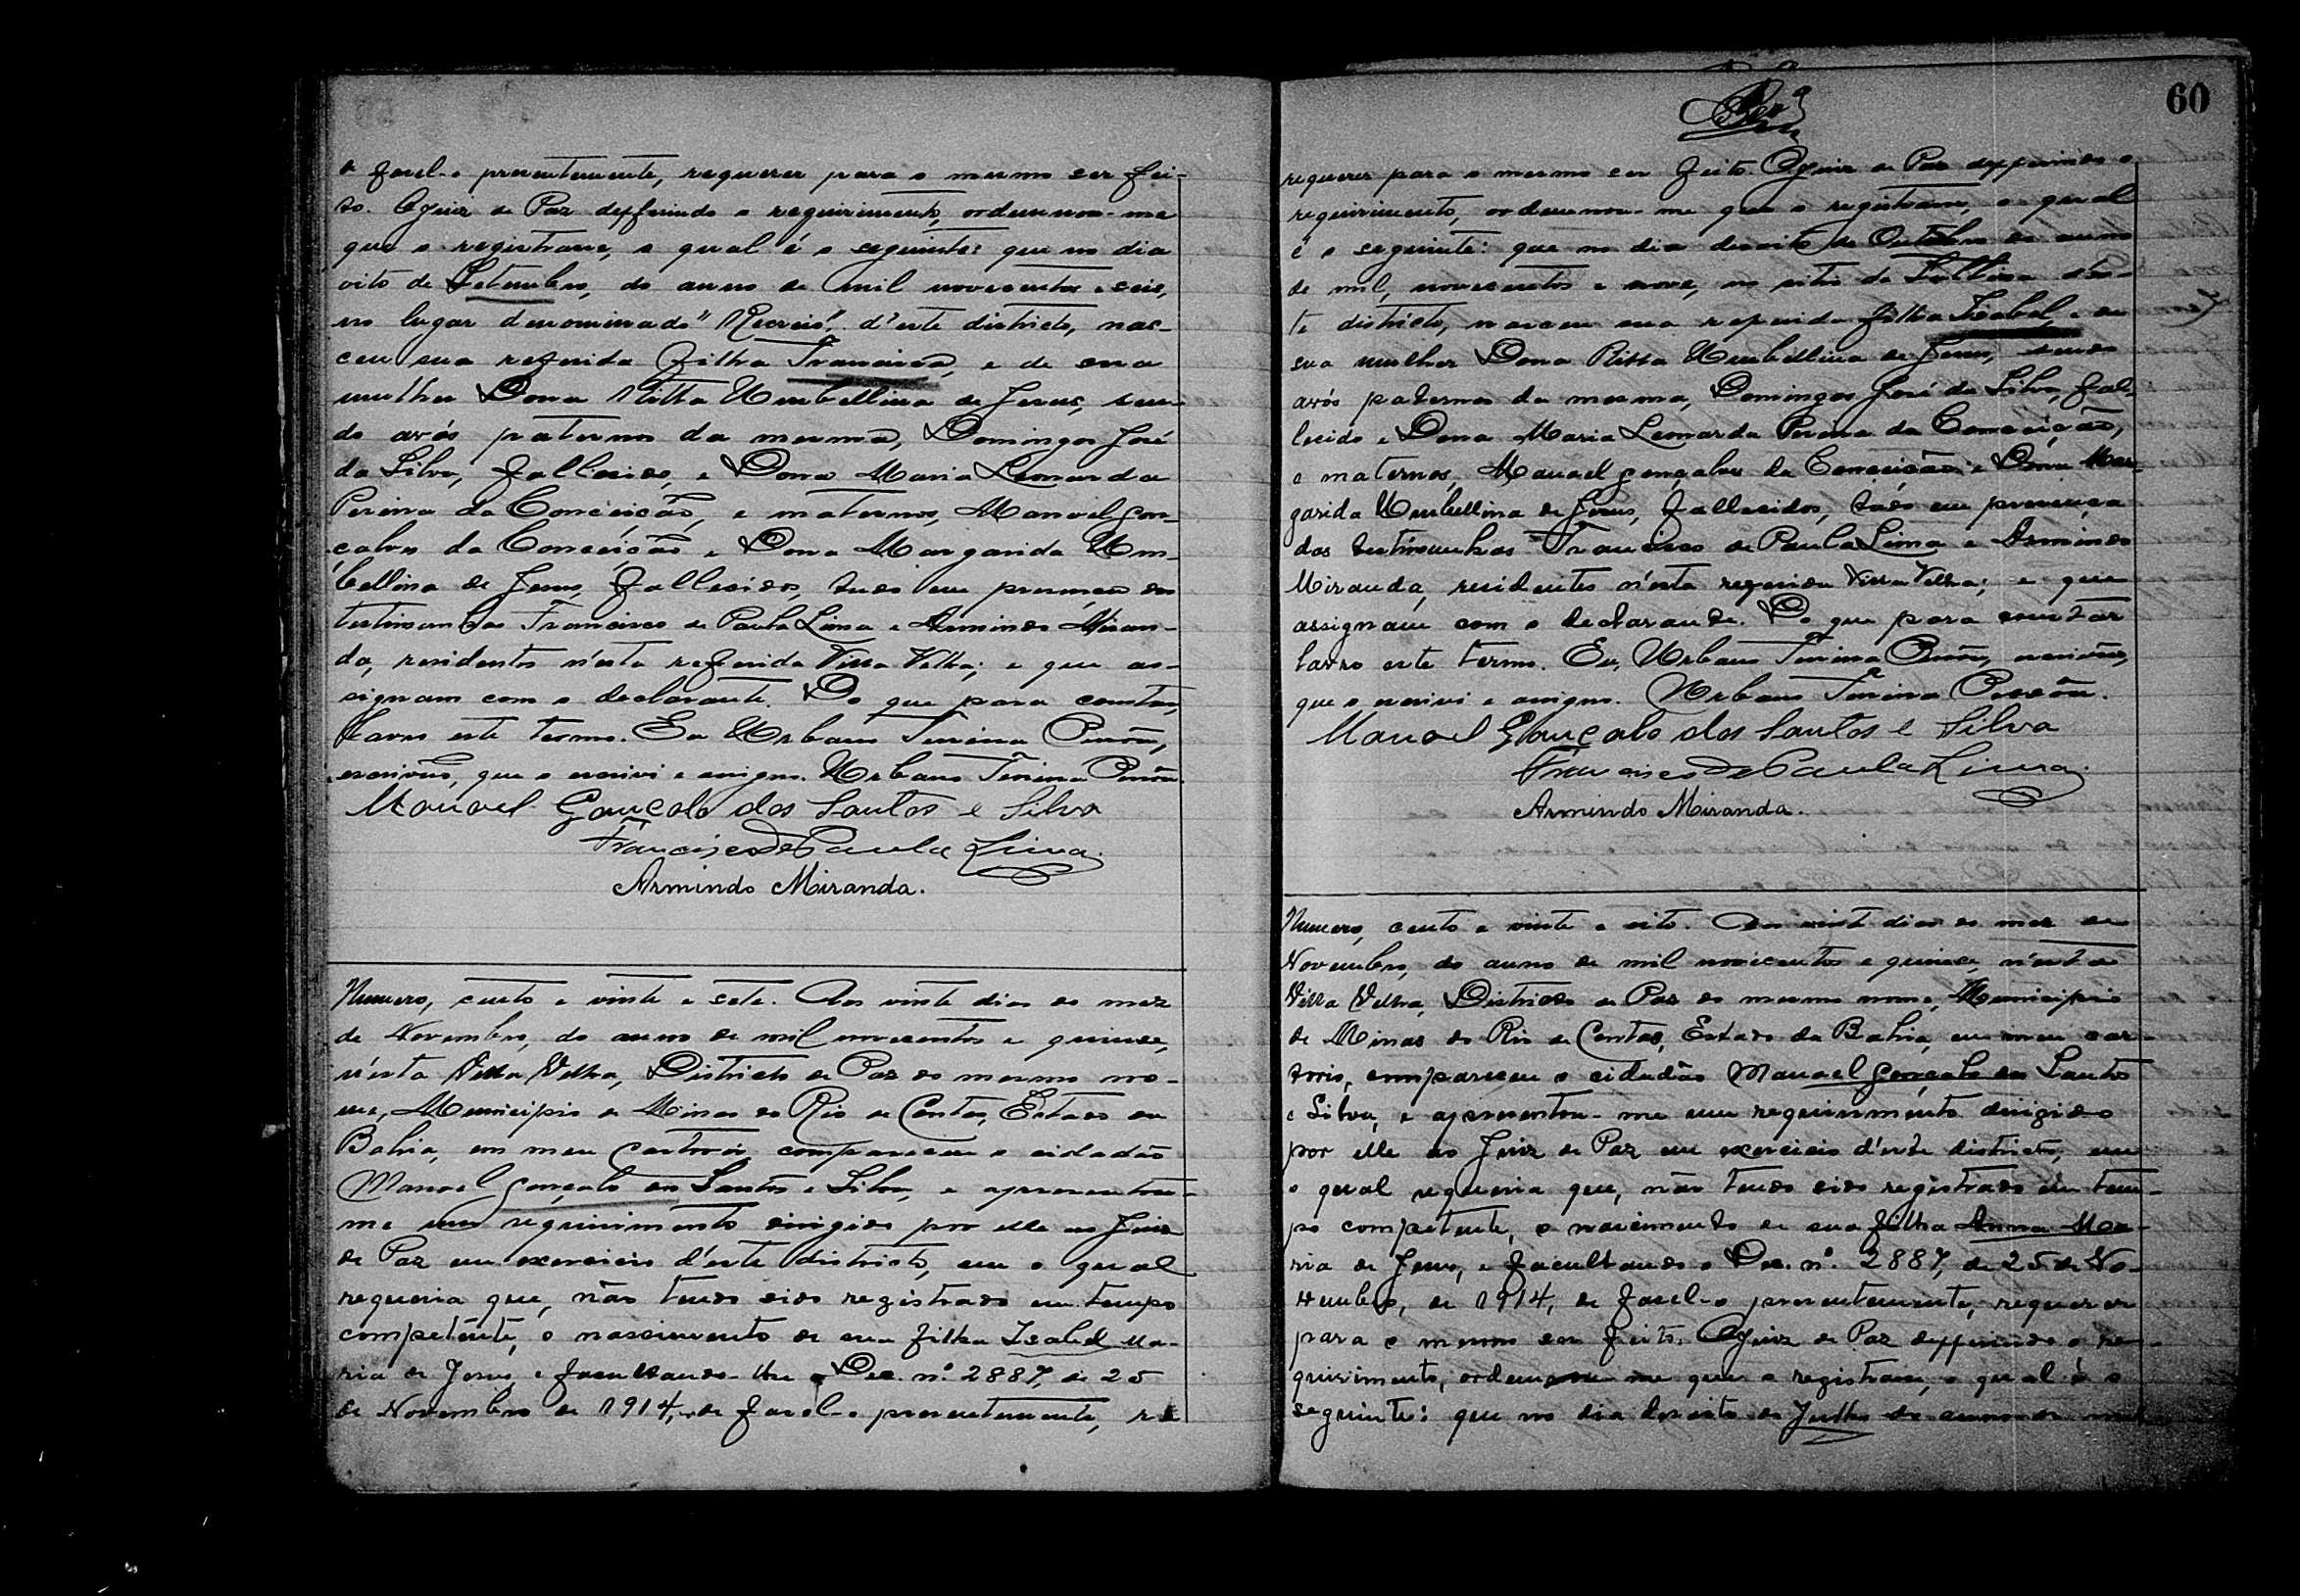 o fazel-o presentemente, requerer para o mesmo ser fei-
to. O Juiz de Paz defferindo o requirimento, ordennou-me
que o registrasse, o qual é o seguinte: que no dia
oito de Setembro, do anno de mil novecentos e seis,
no lugar denominado "Recreio", d'este districto, nas-
ceu sua referida filha Francisca, e de sua
mulher Dona Ritta Umbellina de Jesus, sen-
do avós paternos da mesma, Domingos José
da Silva, fallecido, e Dona Maria Leonarda
Pereira da Conceição, e maternos, Manoel Gon-
çalves da Conceição e Dona Margarida Um-
bellina de Jesus, fallecidos, tudo em presença das
testimunhas Francisco de Paula Lima e Armindo Miran-
da, residentes n'esta referida Villa Velha; e que as-
signam com o declarante. Do que para constar,
lavro este termo. Eu Urbano
escrivão, que o escrivi e assigno. Urbano
Manoel Gonçalo dos Santos e Silva
Francisco de Paula Lima
Armindo Miranda.
Numero, cento e vinte e sete. Aos vinte dias do mez
de Novembro, do anno de mil novecentos e quinze,
n'esta Villa Velha, Districto de Paz do mesmo no-
me, Municipio de Minas do Rio de Contas, Estado da
Bahia, em meu cartorio, compareceu o cidadão
Manoel Gonçalo dos Santos e Silva, e apresentou-
me um requirimento dirigido por elle ao Juiz
de Paz em exercicio d'este districto, em o qual
requeria que, não tendo sido registrado em tempo
competente, o nascimento de sua filha Isabel Ma-
ria de Jesus, e facultando-lhe o Dec. nº. 2887, de 25
de Novembro de 1914, de fazel-o presentemente, re
60
requerer para o mesmo ser feito. O Juiz de Paz defferindo o
requirimento, ordennou-me que o registrasse, o qual
é o seguinte: que no dia desoito de Outubro do anno
de mil, novecentos e nove, no sitio da d'es-
te districto, nasceu sua referida filha Isabel, e de
sua mulher Dona Ritta Umbellina de Jesus, sendo
avós paternos da mesma, Domingos José da Silva, fal-
lecido e Dona Maria Leonarda Pereira da Conceição,
e maternos, Manoel Gonçalves da Conceição e Dona Mar-
garida Umbellina de Jesus, fallecidos, tudo em presença
das testimunhas Francisco de Paula Lima e Armindo
Miranda, residentes n'esta referida Villa Velha; e que
assignam com o declarante. Do que para constar
lavro este termo. Eu, Urbano escrivão,
que o escrivi e assigno. Urbano
Manoel Gonçalo dos Santos e Silva
Francisco de Paula Lima.
Armindo Miranda.
Numero, cento e vinte e oito. Aos vinte dias do mez de
Novembro, do anno de mil novecentos e quinze, n'esta
Villa Velha, Districto de Paz do mesmo nome, Municipio
de Minas do Rio de Contas, Estado da Bahia, em meu car-
torio, compareceu o cidadão Manoel Gonçalo dos Santos
e Silva, e apresentou-me um requirimento dirigido
por elle ao Juiz de Paz em exercicio d'este districto, em
o qual requeria que, não tendo sido registrado em tem-
po competente, o nascimento de sua filha Anna Ma-
ria de Jesus, e facultando o Dec. nº. 2887, de 25 de No-
vembro, de 1914, de fazel-o presentemente, requerer
para o mesmo ser feito. O Juiz de Paz defferindo o re-
quirimento, ordennou me que o registrasse, o qual é o
seguinte: que no dia desoito de Julho do anno de mil